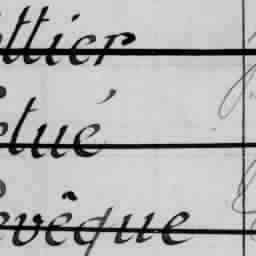 ttier
etué
evêque